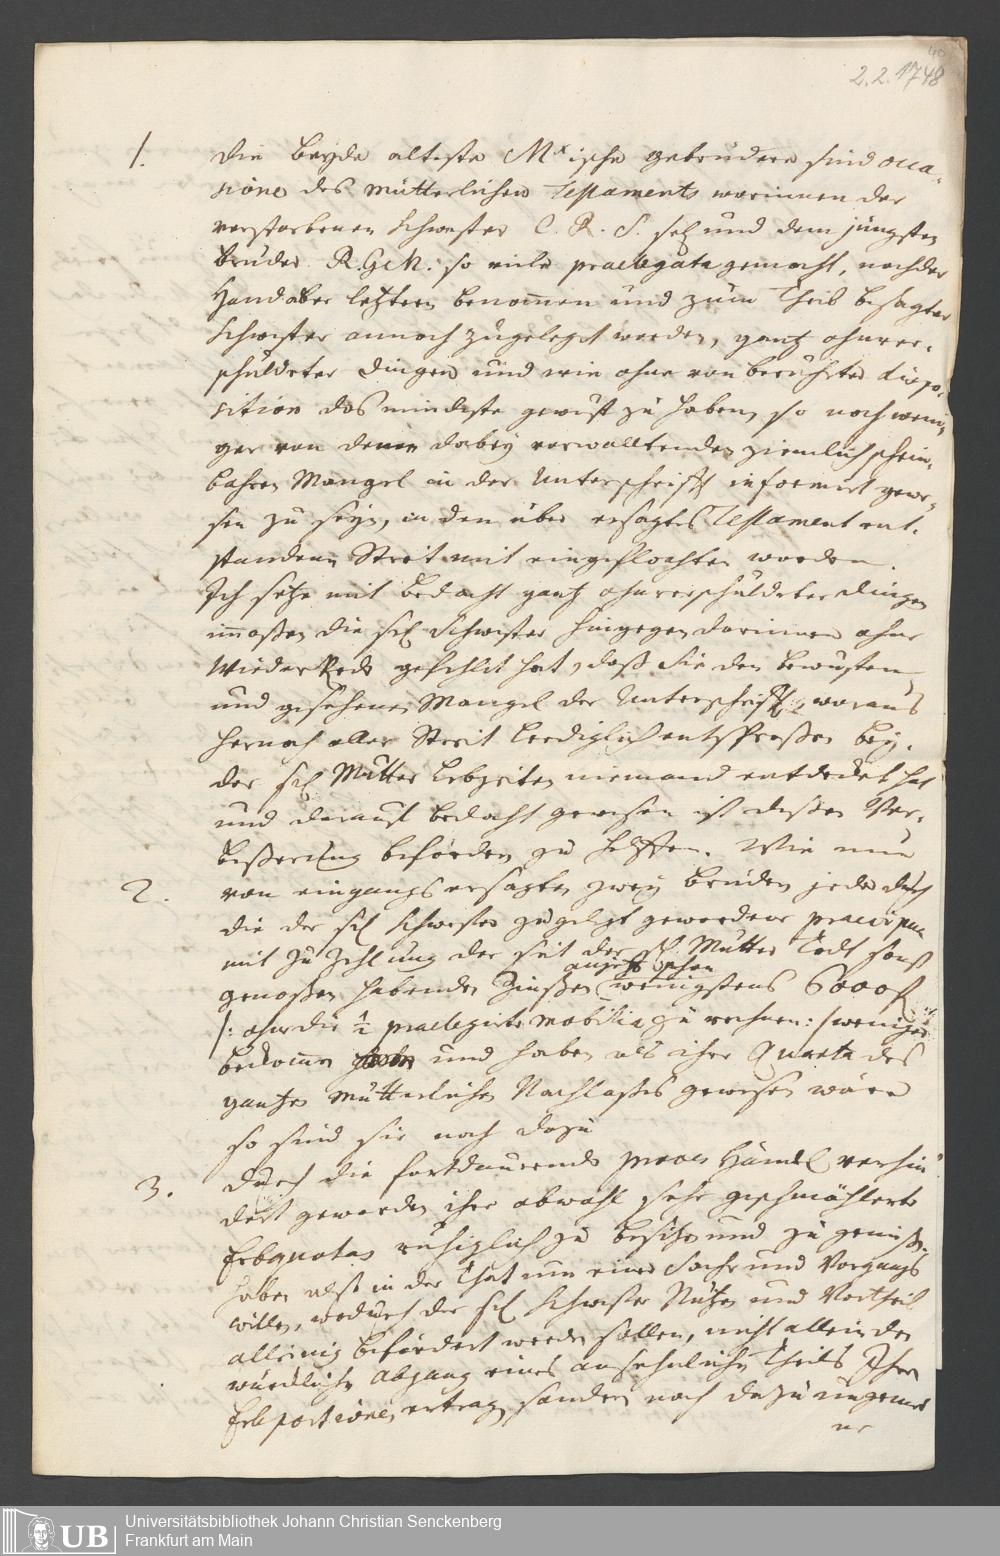 40
2.2.1748
1. die beyde älteste Mxische gebrüdere sind occa-
sione des mütterlichen Testaments worinnen der
verstorbenen Schwester C. R. S. sel und dem jüngsten
bruder R. G. M. so viele praelegata gemacht, nach der
Hand aber letztern benom̅en und zum Theil besagter
Schwester annoch zugelegt worden, gantz ohnver-
schuldeter dingen und wie ohne von berührter dispo-
sition das mindeste gewust zu haben, so noch weni-
ger von denen dabey vorwalltenden ziemlich schein-
bahren Mangel in der Unterschrifft informirt gewe-
sen zu seyn, in den über ersagtes Testament ent-
standenen Streit mit eingeflochten worden.
Ich setze mit bedacht gantz ohnverschuldeter dingen
im̅aßen die sel Schwester hingegen darinnen ohne
Wiederrede gefehlet hat, daß Sie den bewusten
und gesehenen Mangel der Unterschrifft, woraus
hernach aller Streit lediglich entsproßen bey
der sel Mutter Lebzeiten niemand entdecket hat
und darauf bedacht gewesen ist deßen Ver-
beßerung befördern zu helffen. Wie nun
2. von eingangs ersagten zwey brüdern jeder durch
die der sel Schwester zugelegt gewordene praecipua
mit Zuzehlung der seit der sel Mutter Todt sonst
genoßen habenden Zinßen wenigstens 6000 f
/: ohne die 1/2 praelegirte mobilia zu rechnen :/ weniger
bekom̅en und haben als ihre Quarta des
gantzen mütterlichen Nachlaßes gewesen wäre
so sind sie noch dazu
3. durch die fortdaurende process Händel verhin-
dert geworden ihre obwohl sehr geschmählerte
Erbquotas ruhiglich zu besitzen und zu genießen
haben also in der That um einer Sache und Vorgangs
willen, wodurch der sel Schwester Nutzen und Vortheil
alleinig befördert werden sollen, nicht allein den
würcklichen Abgang eines ansehnlichen Theils Ihrer
Erbportionen ertragen sondern noch dazu ungemei-
ne
Universitätsbibliothek Johann Christian Senckenberg
UB Frankfurt am Main